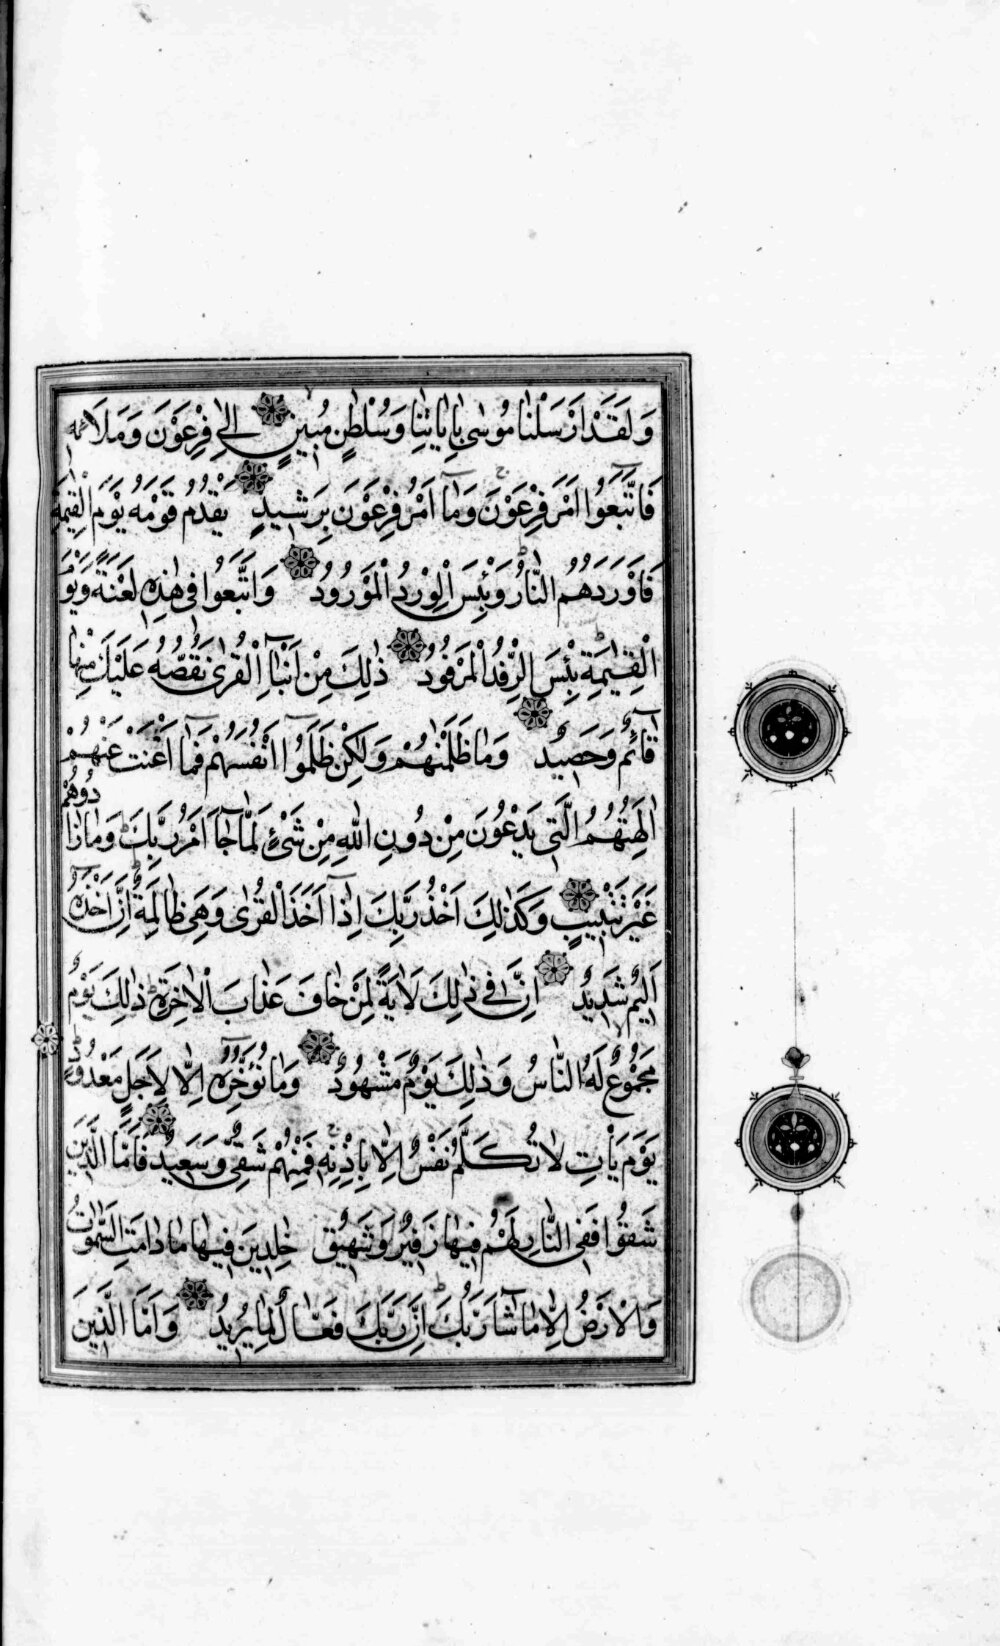 وَلَقَدْ اَرْسَلْنٰا مُوسٰى بِاٰيٰاتِنٰا وَسُلْطٰنٍ مُبٖينٍ اِلٰى فِرْعَوْنَ وَمَلَا۬ئِهٖ
فَاتَّبَعُٓوا اَمْرَ فِرْعَوْنَ وَمٰٓا اَمْرُ فِرْعَوْنَ بِرَشٖيدٍ يَقْدُمُ قَوْمَهُ يَوْمَ الْقِيٰمَةِ
فَاَوْرَدَهُمُ النّٰارَ وَبِئْسَ الْوِرْدُ الْمَوْرُودُ وَاُتْبِعُوا فٖى هٰذِهٖ لَعْنَةً وَيَوْمَ
الْقِيٰمَةِ بِئْسَ الرِّفْدُ الْمَرْفُودُ ذٰلِكَ مِنْ اَنْبٰٓاءِ الْقُرٰى نَقُصُّهُ عَلَيْكَ مِنْهٰا
قٰٓائِمٌ وَحَصٖيدٌ وَمٰا ظَلَمْنٰهُمْ وَلٰكِنْ ظَلَمُٓوا اَنْفُسَهُمْ فَمٰٓا اَغْنَتْ عَنْهُمْ
اٰلِهَتُهُمُ الَّتٖى يَدْعُونَ مِنْ دُونِ اللّٰهِ مِنْ شَىْءٍ لَمّٰا جٰٓاءَ اَمْرُ رَبِّكَ وَمٰا زٰادُوهُمْ
غَيْرَ تَتْبٖيبٍ وَكَذٰلِكَ اَخْذُ رَبِّكَ اِذٰٓا اَخَذَ الْقُرٰى وَهِىَ ظٰالِمَةٌ اِنَّ اَخْذَهُٓ
اَلٖيمٌ شَدٖيدٌ اِنَّ فٖى ذٰلِكَ لَاٰيَةً لِمَنْ خٰافَ عَذٰابَ الْاٰخِرَةِ ذٰلِكَ يَوْمٌ
مَجْمُوعٌ لَهُ النّٰاسُ وَذٰلِكَ يَوْمٌ مَشْهُودٌ وَمٰا نُؤَخِّرُهُٓ اِلّٰا لِاَجَلٍ مَعْدُودٍ
يَوْمَ يَاْتِ لٰا تَكَلَّمُ نَفْسٌ اِلّٰا بِاِذْنِهٖ فَمِنْهُمْ شَقِىٌّ وَسَعٖيدٌ فَاَمَّا الَّذٖينَ
شَقُوا فَفِى النّٰارِ لَهُمْ فٖيهٰا زَفٖيرٌ وَشَهٖيقٌ خٰلِدٖينَ فٖيهٰا مٰا دٰامَتِ السَّمٰوٰاتُ
وَالْاَرْضُ اِلّٰا مٰا شٰٓاءَ رَبُّكَ اِنَّ رَبَّكَ فَعّٰالٌ لِمٰا يُرٖيدُ وَاَمَّا الَّذٖينَ